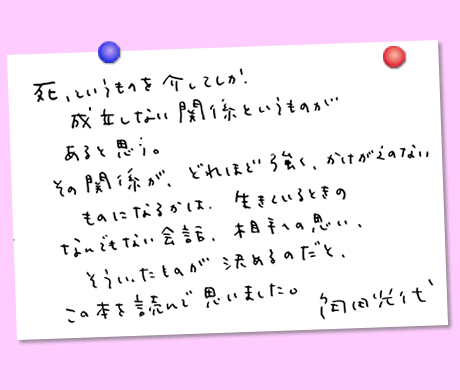 死、というものを介してしか、
成立しない関係というものが
あると思う。
その関係が、どれほど強く、かけがえのない
ものになるかは、生きているときの
なんでもない会話、相手への思い、
そういったものが決めるのだと、
この本を読んで思いました。 角田光代